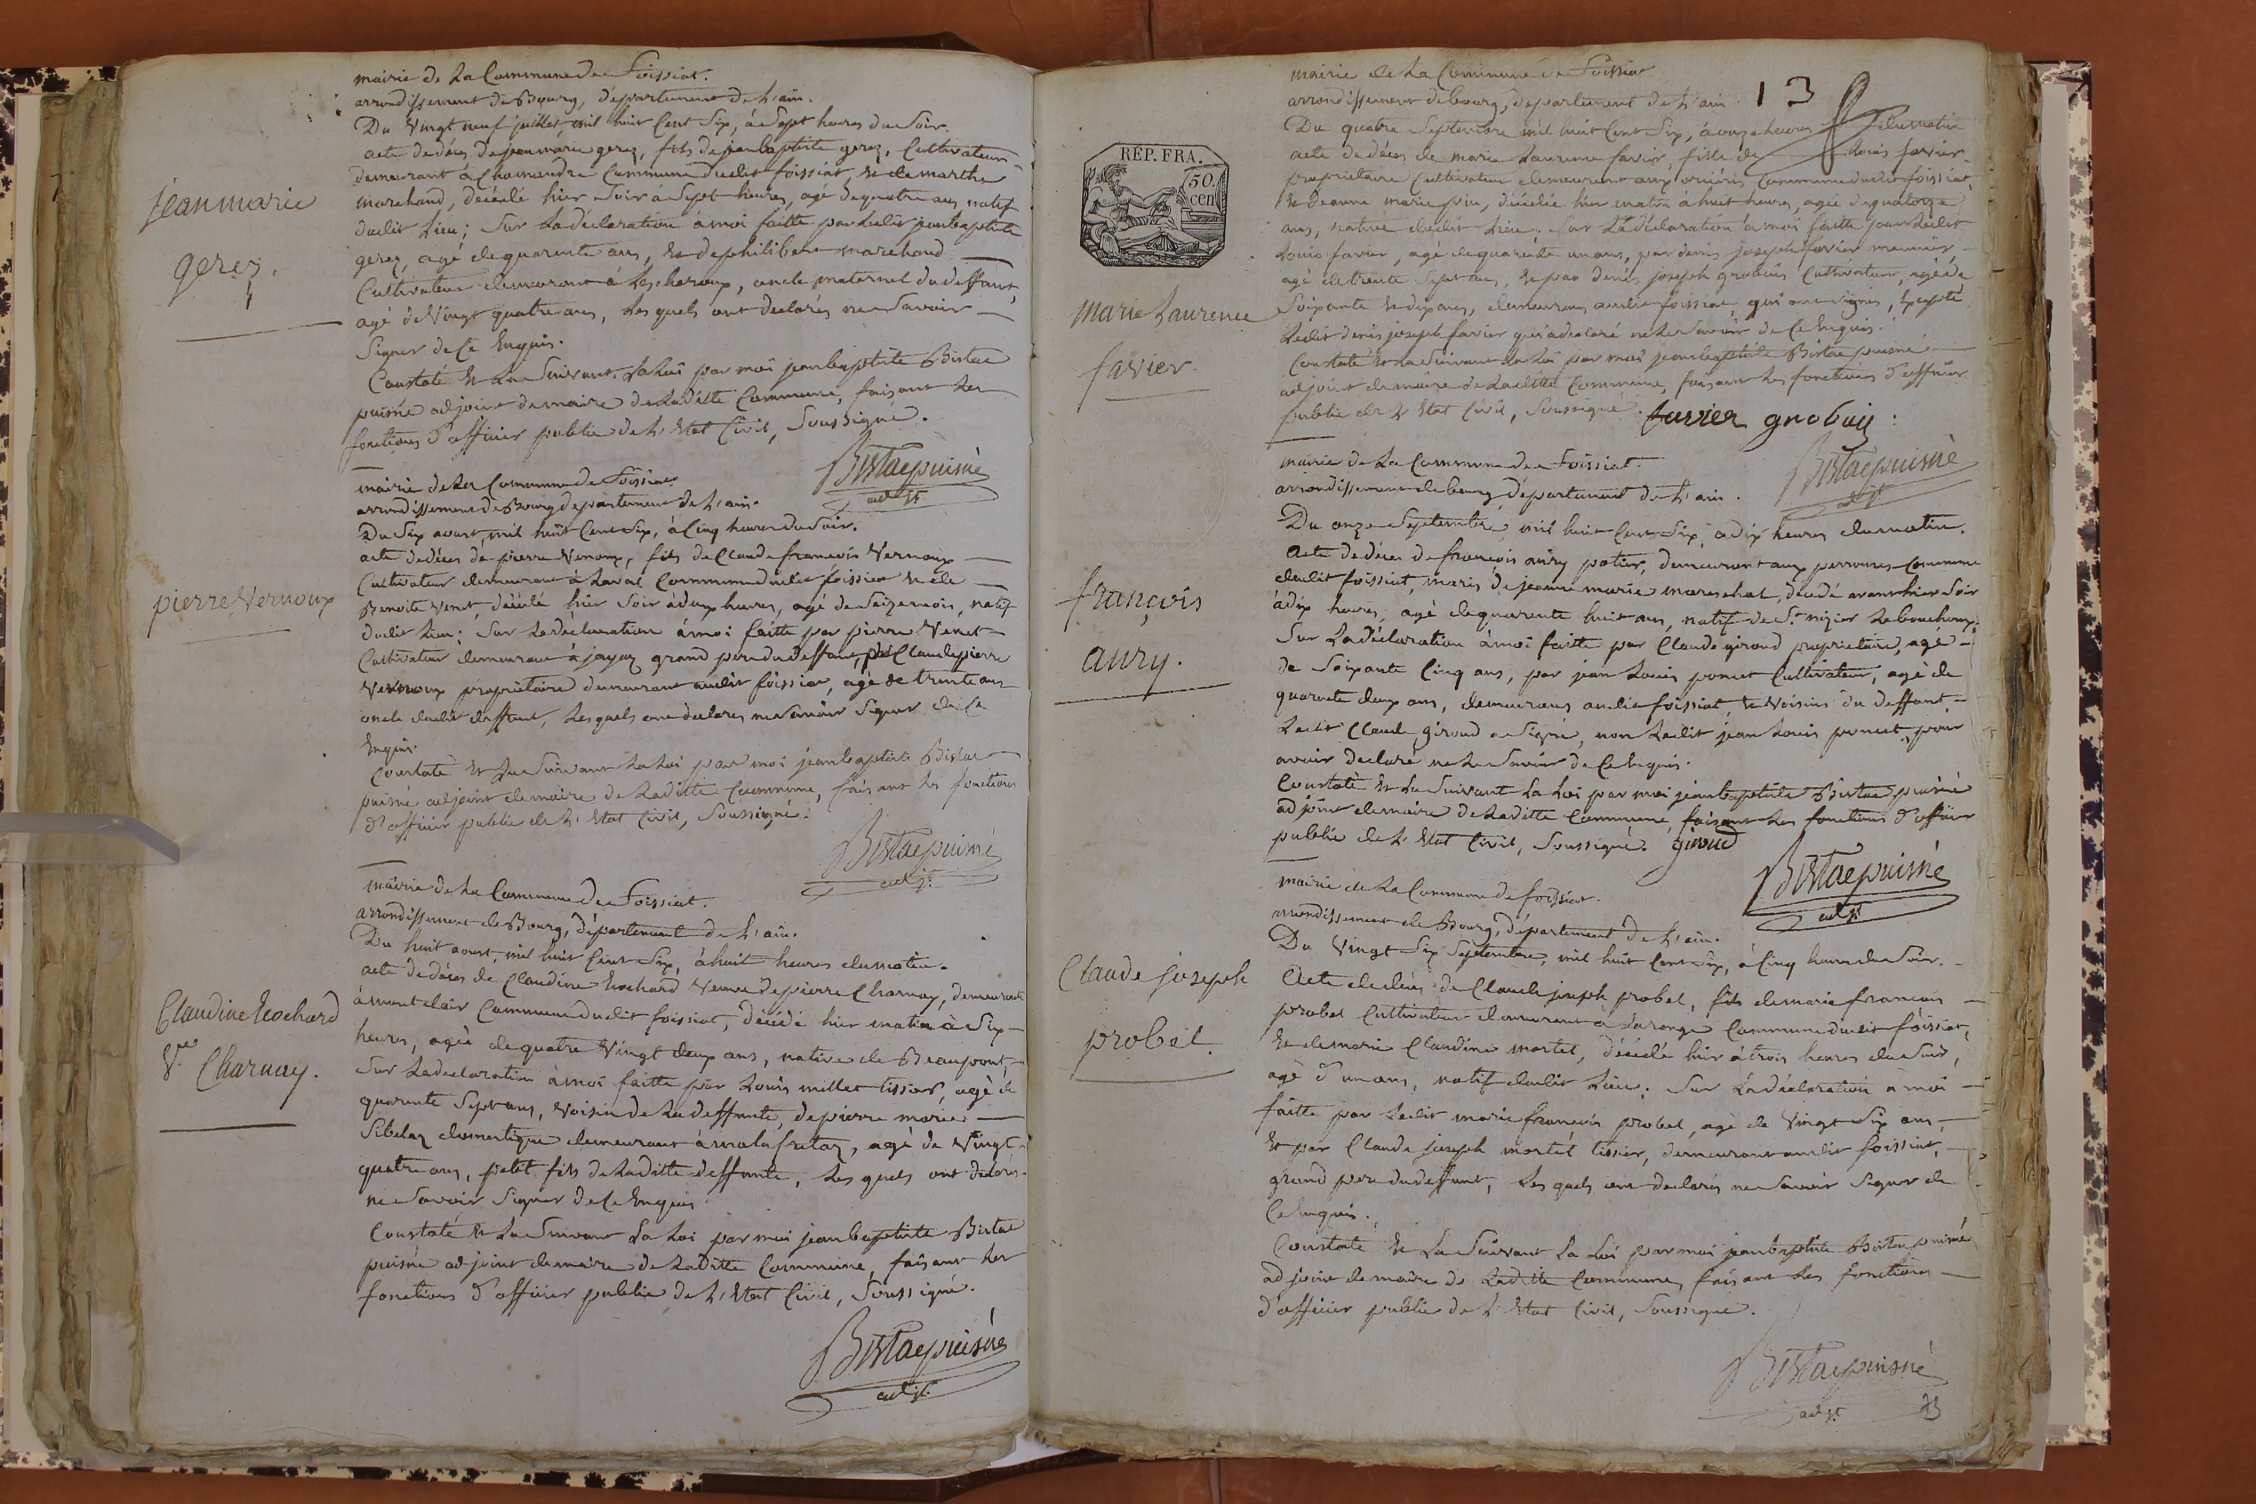 mairie de La Commune de Foissiat.
arrondissement de Bourg, département de L'ain.
Du Vingt neuf juillet, mil huit Cent Six, à Sept heures du Soir.
acte de décès de jean marie gerez, fils de jean baptiste gerez, Cultivateur
demeurant à Chamandre Commune dudit foissiat, & de marthe
jean marie
marchand, décédé hier Soir à Sept heures, agé de quatre ans, natif
dudit Lieu; Sur La déclaration à moi faitte par Ledit jean baptiste
gerez.
gerez, agé de quarante ans, & de philibert marchand
Cultivateur demeurant à Lescheroux, oncle maternel du deffunt,
agé de Vingt quatre ans, Les quels ont declarés ne Savoir
Signer de Ce Enquis.
Constaté & Lu Suivant La Loi par moi jean baptiste Bistac
puisné adjoint de maire de Laditte Commune, faisant Les
fonctions d'officier public de L'Etat Civil, Soussigné.
Bistac puisné
adjt
mairie de La Commune de Foissiat
arrondissement de Bourg département de L'ain.
Du Six aoust, mil huit Cent Six, à Cinq heures du Soir.
acte de décès de pierre Vernoux, fils de Claude francois Vernoux
Cultivateur demeurant à Laval Commune dudit foissiat & de
pierre Vernoux
Benoite Venet, décédé hier Soir à deux heures, agé de Seize mois, natif
dudit Lieu; Sur La déclaration à moi faitte par pierre Venet
Cultivateur demeurant à jayaz grand pere du deffunt, de Claude pierre
Vernoux propriétaire demeurant audit foissiat, agé de trente ans
oncle dudit deffunt, Les quels ont declarés ne Savoir Signer de Ce
Enquis.
Constaté & Lu Suivant La Loi par moi jean baptiste Bistac
puisné adjoint de maire de Laditte Commune, faisant Les fonctions
d'officier public de L'Etat Civil, Soussigné.
Bistac puisné
adjt.
mairie de La Commune de Foissiat.
arrondissement de Bourg, département de L'ain.
Du huit aoust, mil huit Cent Six, à huit heures du matin.
acte de décès de Claudine Rochard Veuve de pierre Charnay, demeurante
Claudine Rochard
à montclair Commune dudit foissiat, décédé hier matin à Six
Ve. Charnay.
heures, agée de quatre Vingt deux ans, native de Beaupont,
Sur La declaration à moi faitte par Louis millet tissier, agé de
quarente Sept ans, Voisin de La deffunte, de pierre marie
Sibelaz domestique demeurant à malafretaz, agé de Vingt
quatre ans, petit fils de Laditte deffunte, Les quels ont declarés
ne Savoir Signer de Ce Enquis
Constaté & Lu Suivant La Loi par moi jean baptiste Bistac
puisné adjoint de maire de Laditte Commune, faisant Les
fonctions d'officier public de L'Etat Civil, Soussigné.
Bistac puisné
adjt.
13
mairie de La Commune de Foissiat
arrondissement de bourg, département de L'ain.
Du quatre Septembre mil huit Cent Six, à onze heures du matin
REP. FRA.
50.
cen
acte de décès de marie Laurence favier, fille de Louis favier
propriétaire Cultivateur demeurant aux Commune dudit foissiat,
& Jeanne marie décédée hier matin à huit heures, agée de quatorze
ans, native dudit Lieu. Sur La déclaration à moi faitte par Ledit
Louis favier, agé de quarante un ans, par denis joseph favier meunier
agé de trente Sept ans, & par denis joseph grobois Cultivateur, agé de
marie Laurence
Soixante & dix ans, demeurans audit foissiat, qui ont Signés, Excepté
Ledit denis joseph favier qui a declaré ne Le Savoir de Ce Enquis.
favier.
Constaté & Lu Suivant La Loi par moi jean baptiste Bistac puisné
adjoint de maire de Laditte Commune, faisant Les fonctions d'officier
public de L'Etat Civil, Soussigné.
favier grobois
Bistac puisné
adjt.
mairie de La Commune de Foissiat.
arrondissement de bourg, département de L'ain.
Du onze Septembre, mil huit Cent Six, à dix heures du matin.
acte de décès de francois aury potier, demeurant aux Commune
françois
dudit foissiat, maris de jeanne marie mareschal, décédé avant hier Soir
à dix heures, agé de quarante huit ans, natif de St. nizier Le bouchoux;
aury.
Sur La déclaration à moi faitte par Claude giroud propriétaire, agé
de Soixante Cinq ans, par jean Louis poncet Cultivateur, agé de
quarante deux ans, demeurans audit foissiat, & Voisins du deffunt,
Ledit Claude giroud a Signé, non Ledit jean Louis poncet, pour
avoir declaré ne Le Savoir de Ce Enquis.
Constaté & Lu Suivant La Loi par moi jean baptiste Bistac puisné
adjoint de maire de Laditte Commune, faisant Les fonctions d'officier
public de L'Etat Civil, Soussigné. giroud
Bistac puisné
adjt
mairie de La Commune de foissiat.
arrondissement de Bourg, département de L'ain.
Du Vingt Six Septembre, mil huit Cent Six, à Cinq heures du Soir.
Claude joseph
Acte de décès de Claude joseph probet, fils de marie francois
probet Cultivateur demeurant à Commune dudit foissiat,
probet.
& de marie Claudine mortel, décédé hier à trois heures du Soir,
agé d'un ans, natif dudit Lieu; Sur La déclaration à moi
faitte par Ledit marie francois probet, agé de Vingt Six ans,
& par Claude joseph mortel tissier, demeurant audit foissiat,
grand pere du deffunt, Les quels ont declarés ne Savoir Signer de
Ce Enquis.
Constaté & Lu Suivant La Loi par moi jean baptiste Bistac puisné
adjoint de maire de Laditte Commune, faisant Les fonctions
d'officier public de L'Etat Civil, Soussigné.
Bistac puisné
adjt.